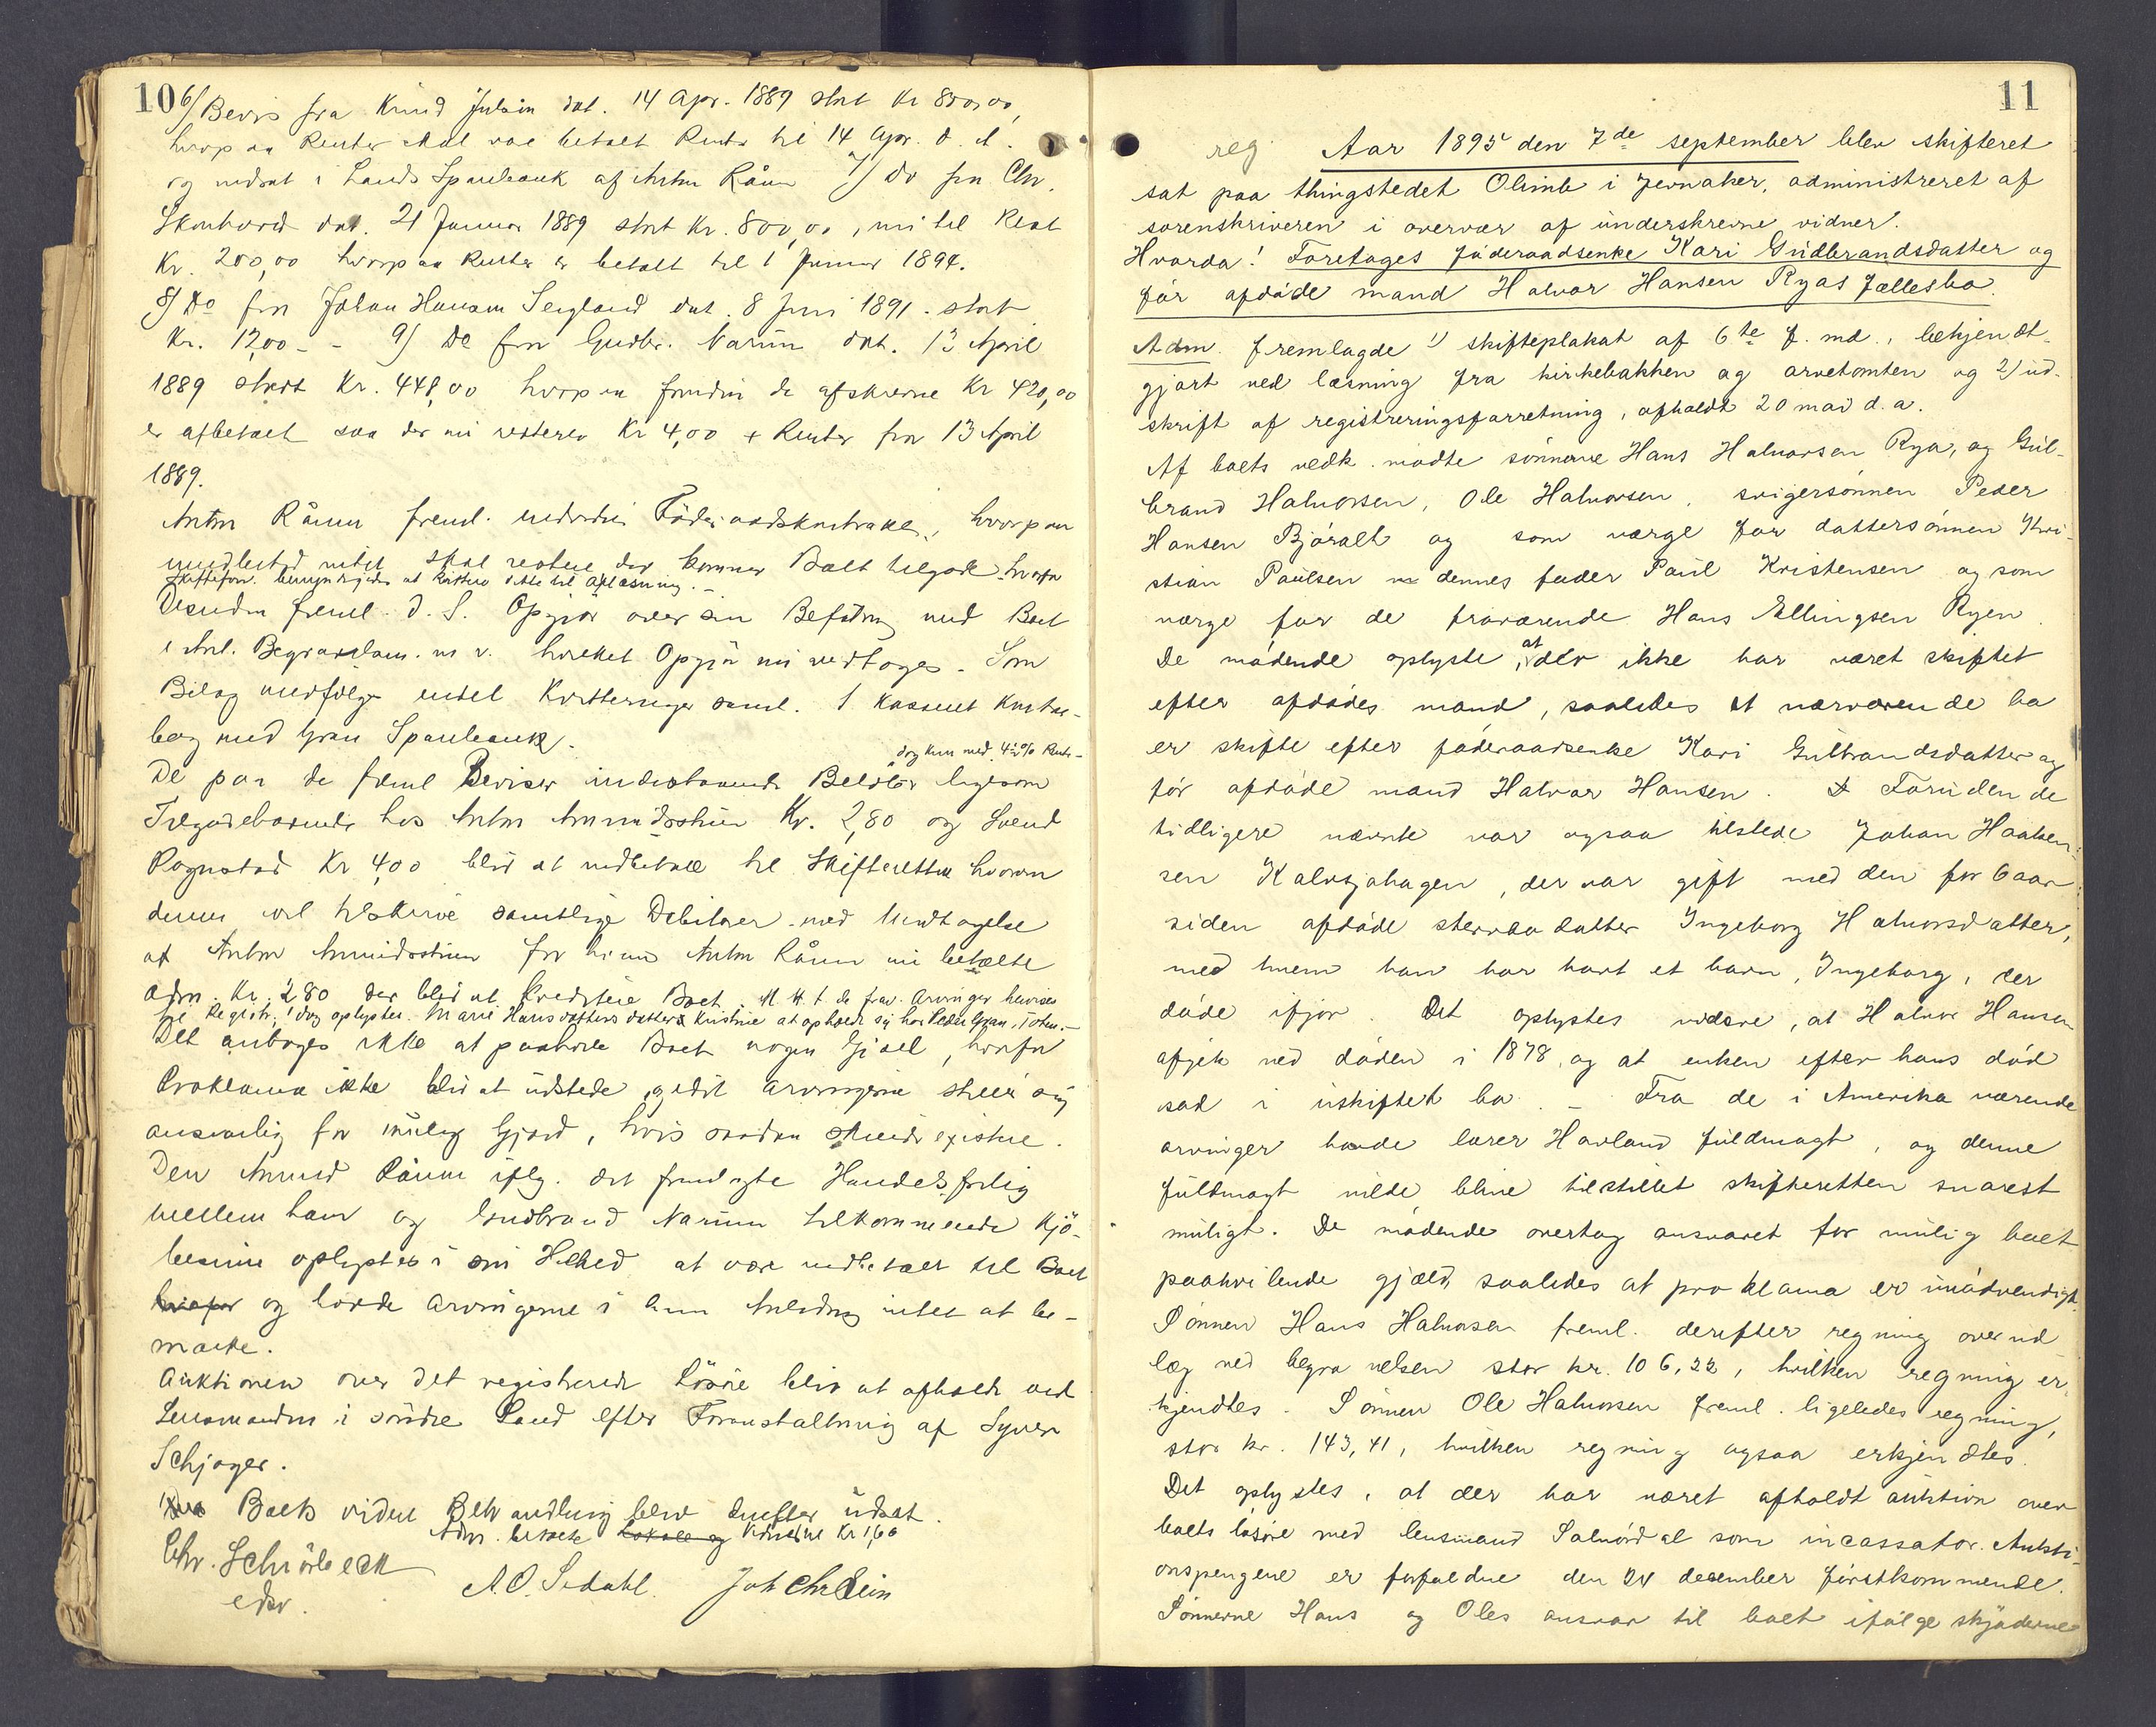 10
6/ Bevis fra Knud Julsin dat. 14 Apr. 1889 stort Kr 800,00,
hvorpaa Renter skal være betalt Renter til 14 Apr. d. A.
og indsat i Lands Sparebank af Anton Råum 7/ Do fra Chr.
dat. 21 Januar 1889 stort Kr. 800,00, nu til Rest
Kr. 200,00 hvorpaa Renter er betalt til 1 Januar 1894.
8/ Do fra Johan Hansen dat. 8 Juni 1891 stort
Kr. 12,00 - - 9/ Do fra Gudbr. Narum dat. 13 April
1889 stort Kr. 448,00 hvorpaa de afskrevne Kr 420,00
er afbetalt saa der nu resterer Kr 4,00 + Renter fra 13 April
1889.
Anton Råum freml. endvidere Föderaadskontrakt, hvorpaa
intet skal restere der kommer Boet tilgode hvorfor
Skifteforv. bemyndigedes at kvittere dette til Aflæsning. -
Desuden freml. d. S. Opgjør over sin Befatning med Boet
i Anl. Begravelsen m. v. hvilket Opgjør nu vedtoges. Som
Bilag medfølge endel Kvitteringer saml. 1 kasseret Kontra-
bog med Gran Sparebank.
dog kun med 4½% Rente -
De paa de freml Beviser indestaaende Beløber ligesom
Tilgodehavende hos Anton Amundsstuen Kr. 2,80 og Svend
Rognstad Kr 4,00 bliver at indbetale til Skifteretten hvorom
denne vil tilskrive samtlige Debitorer med Undtagelse
af Anton Amundsstuen for hvem Anton Råum nu betalte
Adm. Kr. 2,80 der bliver at kreditere Boet. M. H. t. de frav. Arvinger henvises
til Registr.; dog oplystes Marie Hansdatters datter Kristine at opholde sig hos Peder Gran, Toten. -
Det antoges ikke at paahvile Boet nogen Gjæld, hvorfor
Proklama ikke bliver at udstede, idet Arvingerne stiller sig
ansvarlig for mulig Gjæld, hvis saadan skulde existere.
Den Amund Råum iflg. det fremlagte Handelsforlig
mellem ham og Gudbrand Narum tilkommende Kjö-
besum oplystes i sin Helhed at være indbetalt til Boet
hvorfor og havde Arvingerne i den Anledning intet at be-
mærke.
Auktionen over det registrerede Lösöre bliver at afholde ved
Lensmanden i söndre Land efter Foranstaltning af Syver
Schjager.
Boets videre Behandling blev derefter udsat.
Adm. betalte Lokale og Vidnerne Kr 1,60
Chr. Schiörbeck
edsv.
A. O. Sedahl. Joh Chr Lein
11
reg Aar 1895 den 7de september blev skifteret
sat paa thingstedet Olimb i Jevnaker, administreret af
sorenskriveren i overvær af underskrevne vidner.
Hvorda! Foretages föderaadsenke Kari Gudbrandsdatter og
før afdøde mand Halvor Hansen Ryas fællesbo.
Adm. fremlagde 1) skifteplakat af 6te f. md., bekjendt-
gjort ved læsning fra kirkebakken og arvetomten og 2) ud-
skrift af registreringsforretning, afholdt 20 mai d. a.
Af boets vedk. mødte sønnerne Hans Halvorsen Rya, og Gul-
brand Halvorsen, Ole Halvorsen, svigersønnen Peder
Hansen Bjøralt og som værge for dattersønnen Kri-
stian Paulsen dennes fader Paul Kristensen og som
værge for de fraværende Hans Ellingsen Ryen.
De mødende oplyste, at der ikke har været skiftet
efter afdødes mand, saaledes at nærværende bo
er skifte efter føderaadsenke Kari Gulbrandsdatter og
før afdøde mand Halvor Hansen. Foruden de
tidligere nævnte var ogsaa tilstede Johan Haaken-
sen Kalvsjøhagen, der var gift med den for 6 aar
siden afdøde datter Ingeborg Halvorsdatter,
med hvem han har havt et barn, Ingeborg, der
døde ifjor. Det oplystes videre, at Halvor Hansen
afgik ved døden i 1878, og at enken efter hans død
sad i uskiftet bo. - Fra de i Amerika værende
arvinger havde lærer Havland fuldmagt, og denne
fuldmagt vilde blive tilstillet skifteretten snarest
muligt. De mødende overtog ansvaret for mulig boet
paahvilende gjæld, saaledes at proklama er unødvendigt.
Sønnen Hans Halvorsen freml. derefter regning over ud-
læg ved begravelsen stor kr. 106,22, hvilken regning er-
kjendtes. Sønnen Ole Halvorsen freml. ligeledes regning,
stor kr. 143,41, hvilken regning ogsaa erkjendtes.
Det oplystes, at der har været afholdt auktion over
boets løsøre med lensmand Salmördal som incassator. Aukti-
onspengene er forfaldne den 24 december førstkommende.
Sønnerne Hans og Oles ansvar til boet ifølge skjøderne